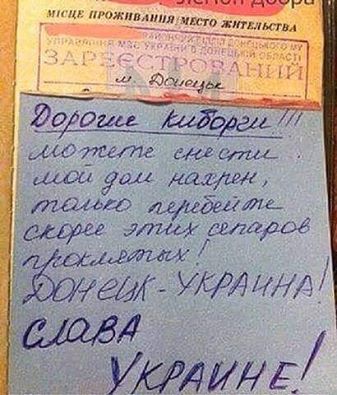 Легион добра
МІСЦЕ ПРОЖИВАННЯ/МЕСТО ЖИТЕЛЬСТВА
УПРАВЛІННЯ МВС УКРАЇНИ В ДОНЕЦЬКІЙ ОБЛАСТІ
ЗАРЕЄСТРОВАНИЙ
м. Донецьк
Дорогие киборги!!!
можете снести
мой дом нахрен,
только перебейте
скорее этих сепаров
проклятых!
ДОНЕЦК - УКРАИНА!
СЛАВА
УКРАИНЕ!